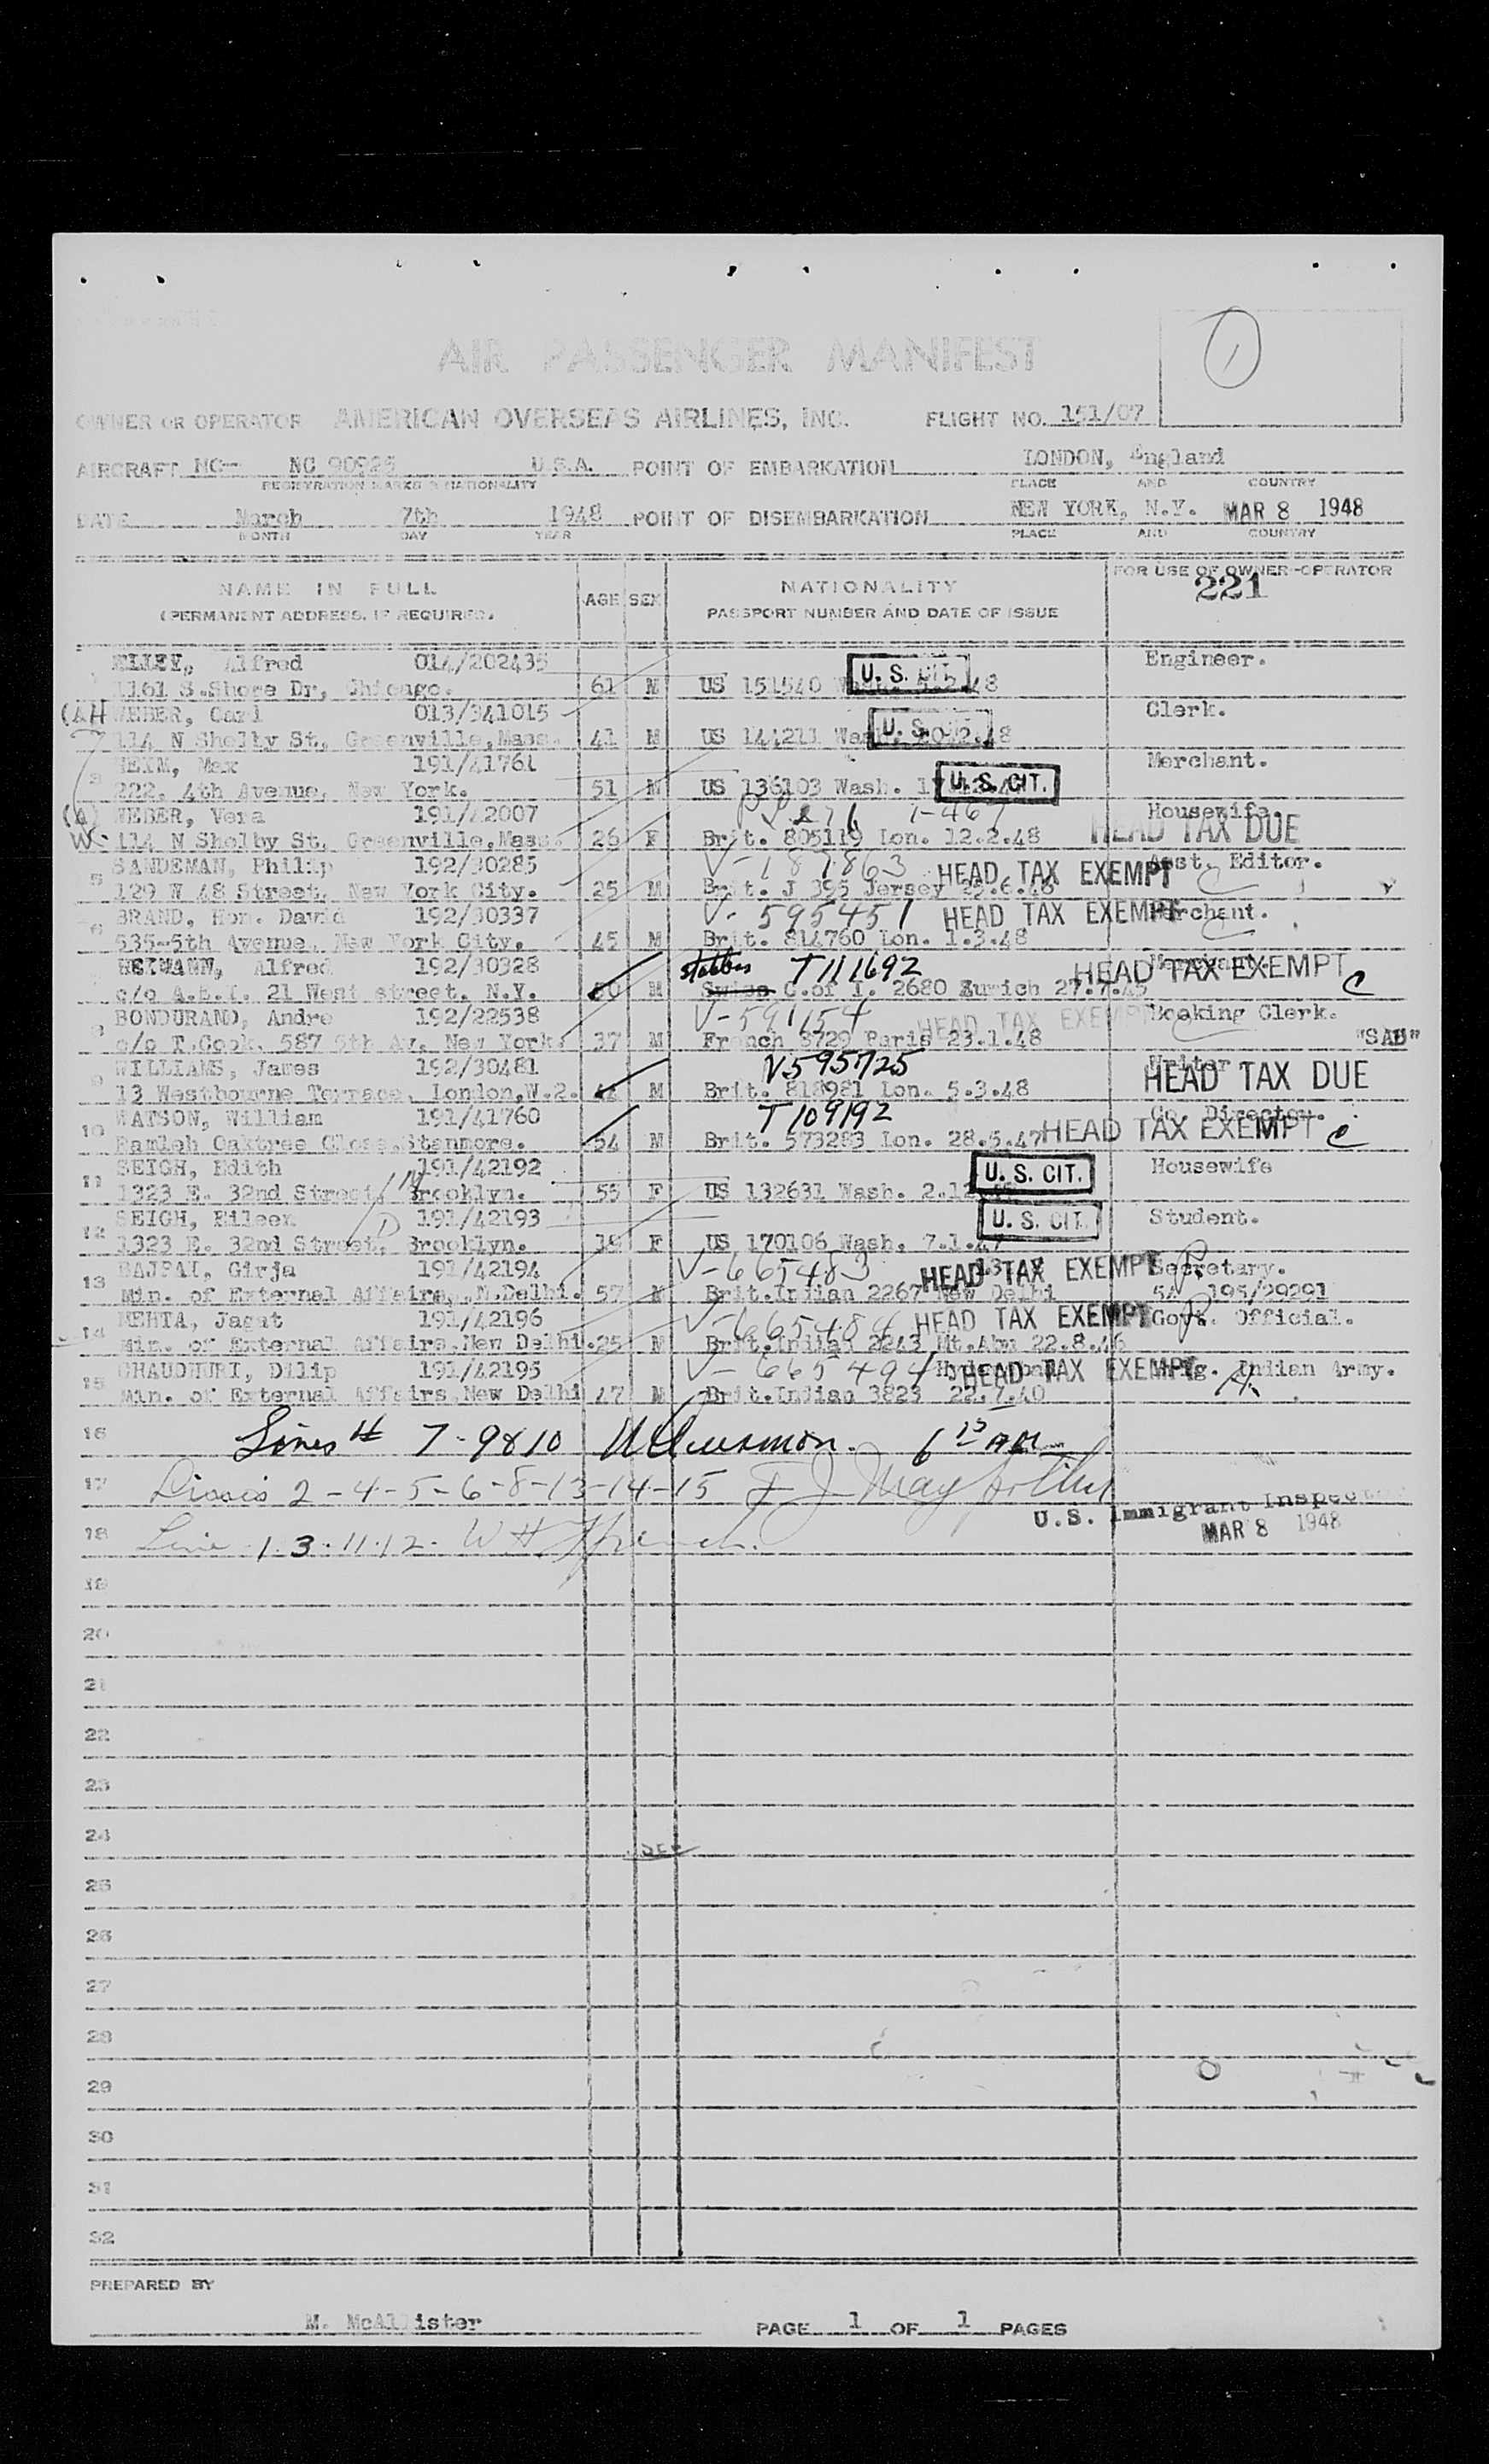 1
AIR PASSENGER MANIFEST
OWNER OR OPERATOR AMERICAN OVERSEAS AIRLINES, INC. FLIGHT NO. 151/07
AIRCRAFT NC- NC 90925 U.S.A. POINT OF EMBARKATION LONDON, England
REGISTRATION MARKS & NATIONALITY PLACE AND COUNTRY
DATE March 7th 1948 POINT OF DISEMBARKATION NEW YORK, N.Y. MAR 8 1948
MONTH DAY YEAR PLACE AND COUNTRY
NAME IN FULL AGE SEX NATIONALITY FOR USE OF OWNER-OPERATOR
(PERMANENT ADDRESS, IF REQUIRED. PASSPORT NUMBER AND DATE OF ISSUE 221
Alfred 014/202435 U.S. CIT. Engineer.
1161 S.Shore Dr, Chicago. 61 M US 151540
WEBER, Carl 013/341015 U.S. Clerk.
114 N Shelby St, Greenville, Mass. 41 M US 144211 Wash.
3 HEIM, Max 191/41761 Merchant.
222, 4th Avenue, New York. 51 M US 136103 Wash. U.S. CIT.
WEBER, Vera 191/42007 Housewife.
114 N Shelby St, Greenville, Mass. 26 F Brit. 805119 Lon. 12.2.48 HEAD TAX DUE
5 SANDEMAN, Philip 192/30285 V-187863 HEAD TAX EXEMPT Asst. Editor.
129 W 48 Street, New York City. 25 M Brit. J 395 Jersey
6 BRAND, Hon. David 192/30337 V-595451 HEAD TAX EXEMPT Merchant.
535-5th Avenue, New York City. 45 M Brit. 814760 Lon. 1.3.48
HEIMANN, Alfred 192/30328 T111692 HEAD TAX EXEMPT C
c/o A.E.I. 21 West street, N.Y. M Swiss C.of I. 2680 Zurich
BONDURAND, Andre 192/22538 V-591154 HEAD TAX EXEMPT Booking Clerk.
c/o T.Cook, 587 5th Av, New York. 37 M French 3729 Paris 23.1.48 "SAB"
9 WILLIAMS, James 192/30481 V595725 Writer
13 Westbourne Terrace, London,W.2. M Brit. 818981 Lon. 5.3.48 HEAD TAX DUE
10 WATSON, William 191/41760 T109192 Co. Director.
Ramleh Oaktree Close, Stanmore. 54 M Brit. 573283 Lon. 28.5.47 HEAD TAX EXEMPT C
11 SEIGH, Edith 191/42192 U.S. CIT. Housewife
1323 E. 32nd Street, Brooklyn. 55 F US 132631 Wash.
12 SEIGH, Eileen 191/42193 U.S. CIT. Student.
1323 E. 32nd Street, Brooklyn. 18 F US 170106 Wash. 7.1.47
13 BAJPAI, Girja 191/42194 V-665483 HEAD TAX EXEMPT Secretary.
Min. of External Affairs, N.Delhi. 57 M Brit.Indian 2267 New Delhi 195/29291
14 MEHTA, Jagat 191/42196 V-665484 HEAD TAX EXEMPT Govt. Official.
Min. of External Affairs, New Delhi. 25 M Brit.Indian 2243 Mt.Abu 22.8.46
15 CHAUDHURI, Dilip 191/42195 V-665494 HEAD TAX EXEMPT Indian Army.
Min. of External Affairs, New Delhi 47 M Brit.Indian 3823 22.7.40
16 Lines # 7-9&10 6 15 AM
17 2-4-5-6-8-13-14-15 F J
U.S. Immigrant Inspector
18 Line 1.3.11.12. W H French. MAR 8 1948
19
20
21
22
23
24
25
26
27
28
29
30
31
32
PREPARED BY
M. McAllister PAGE 1 OF 1 PAGES